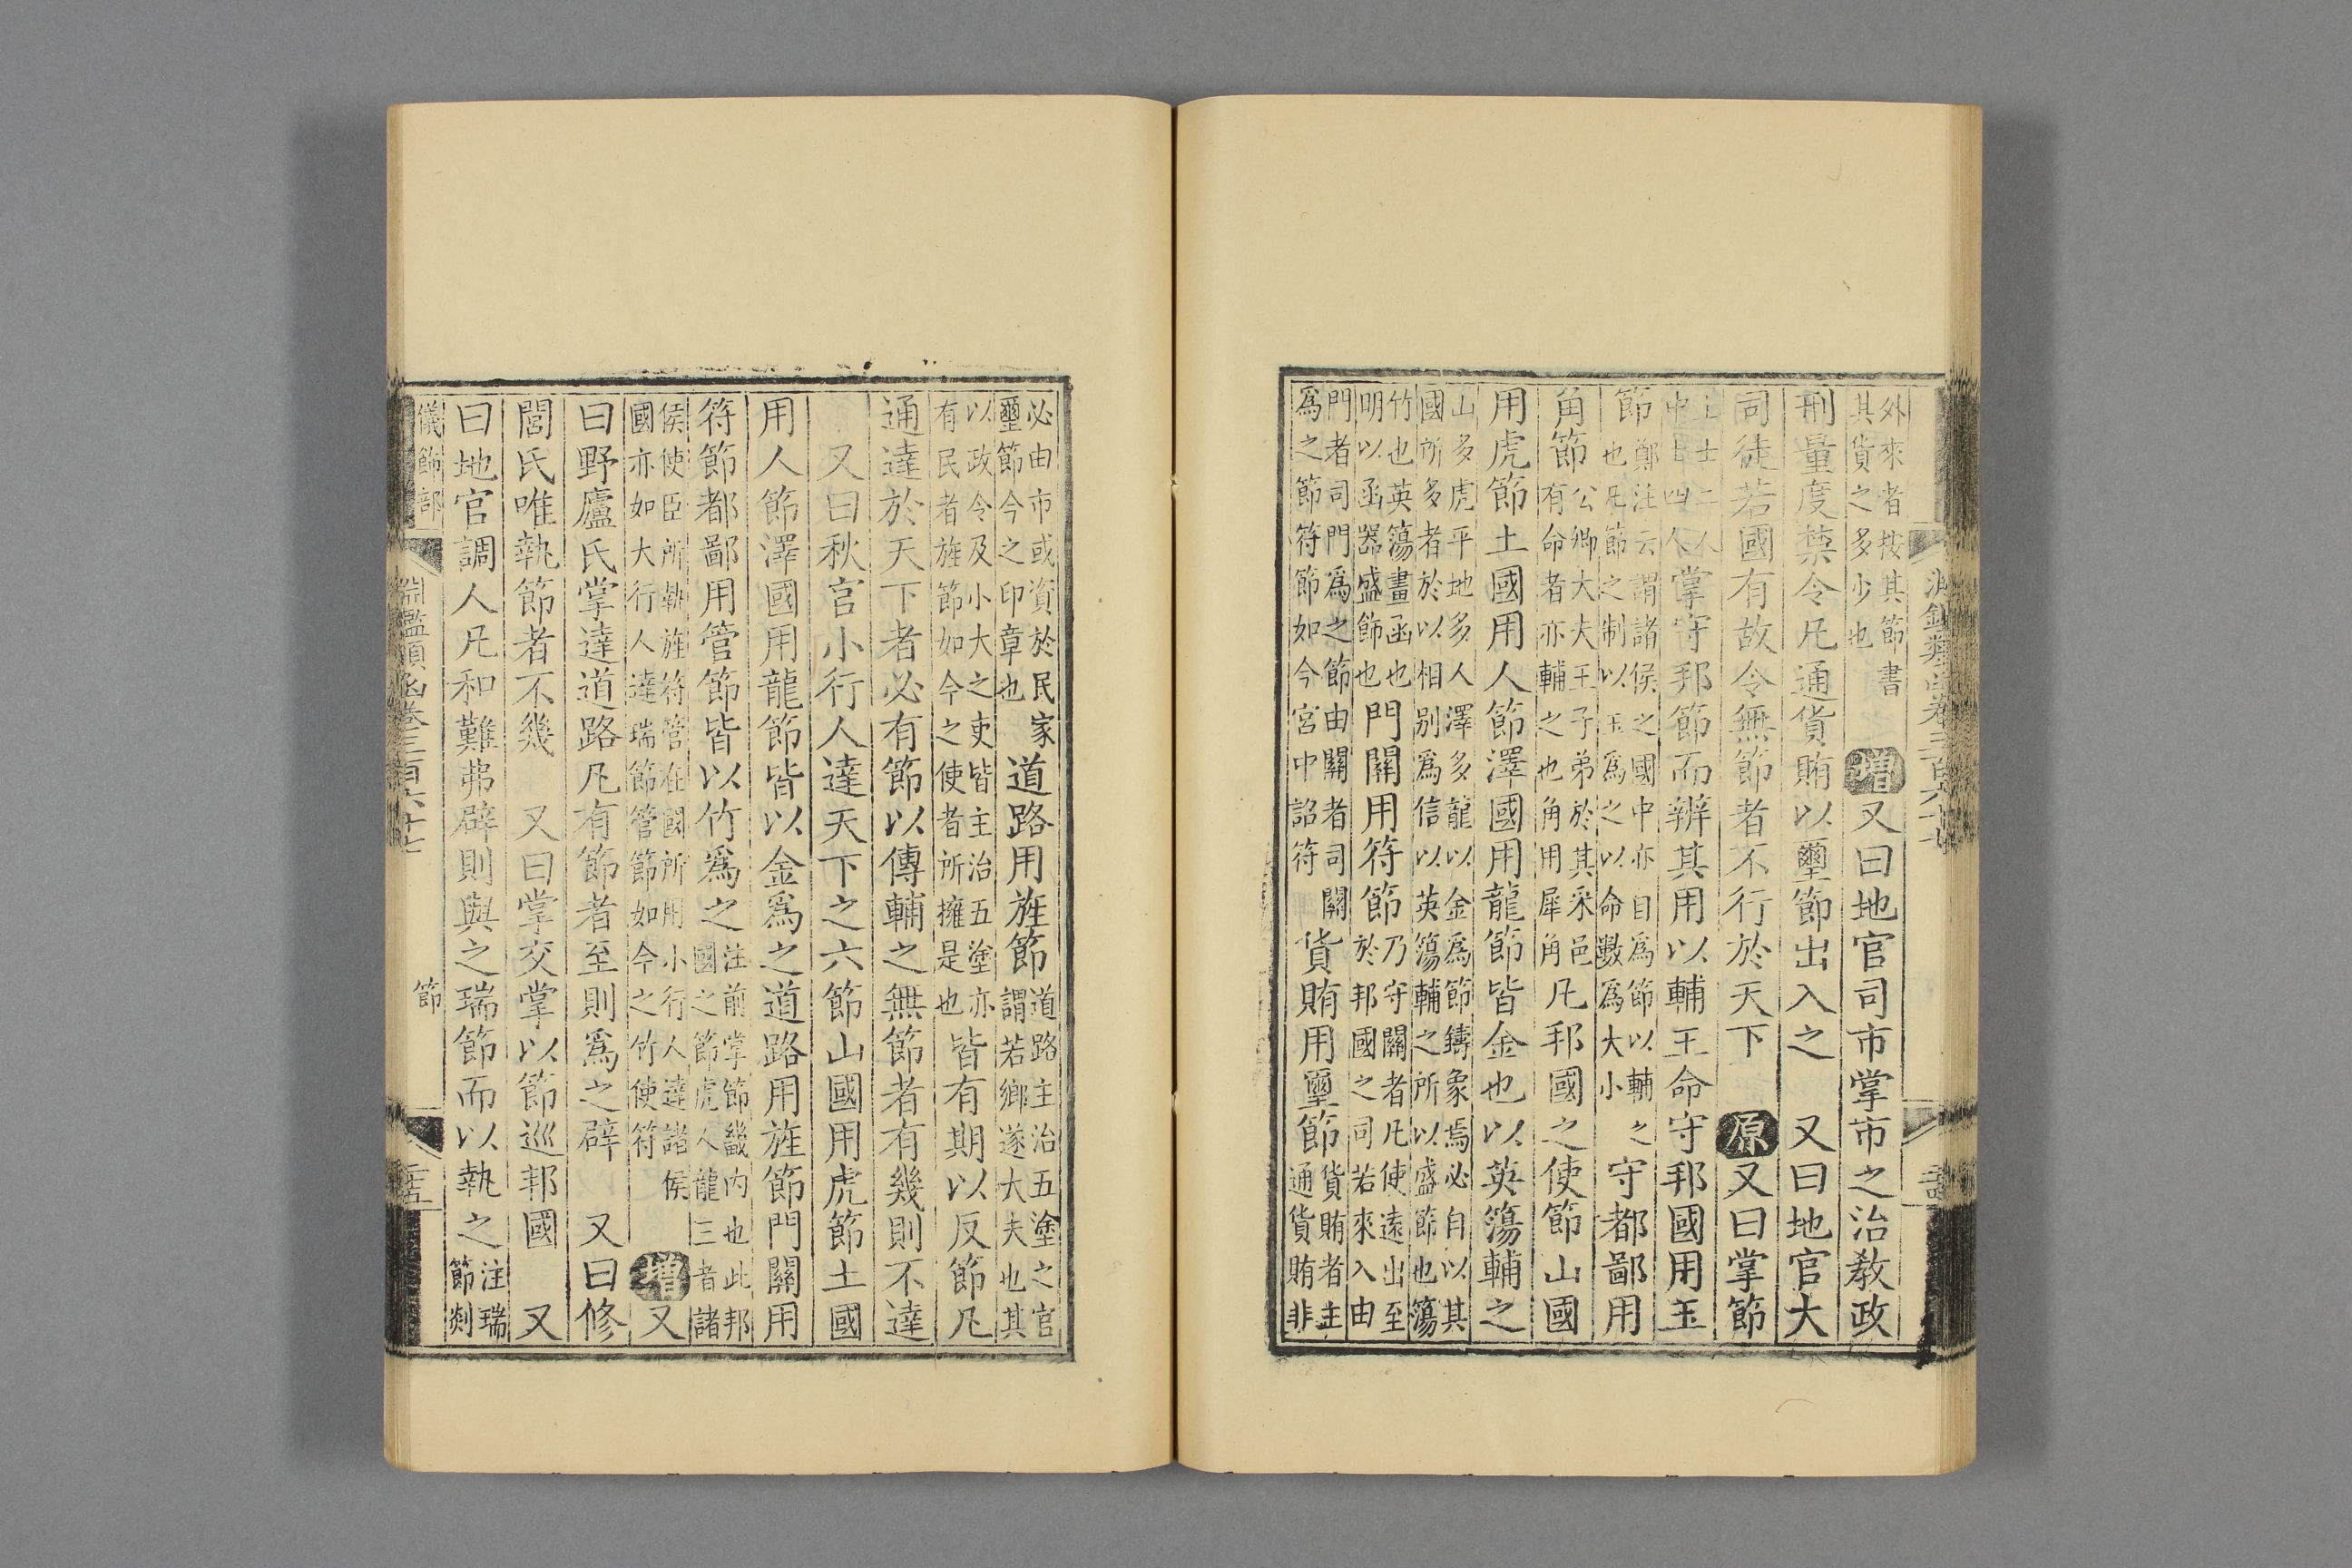 外來者按其節書
其貨之多少也
增又曰地官司市掌市之治教政
刑量度禁令凡通貨賄以璽節出入之　又曰地官大
司徒若國有故令無節者不行於天下　原又曰掌節
上士二人
中士四人
掌守邦節而辨其用以輔王命守邦國用玉
節
鄭注云謂諸侯之國中亦自爲節以輔之
也凡節之制以玉爲之以命數爲大小
守都鄙用
角節
公卿大夫王子弟於其采邑
有命者亦輔之也角用犀角
凡邦國之使節山國
用虎節土國用人節澤國用龍節皆金也以英簜輔之
山多虎平地多人澤多龍以金爲節鑄象焉必自以其
國所多者於以相别爲信以英簜輔之所以盛節也簜
竹也英簜畫函也
明以函器盛飾也
門關用符節
乃守關者凡使遠出至
於邦國之司若來入由
門者司門爲之節由關者司關
爲之節符節如今宮中詔符
貨賄用璽節
貨賄者主
通貨賄非
必由市或資於民家
璽節今之印章也
道路用旌節
道路主治五塗之官
謂若鄉遂大夫也其
以政令及小大之吏皆主治五塗亦
有民者旌節如今之使者所擁是也
皆有期以反節凡
通達於天下者必有節以傳輔之無節者有幾則不達
又曰秋官小行人達天下之六節山國用虎節土國
用人節澤國用龍節皆以金爲之道路用旌節門關用
符節都鄙用管節皆以竹爲之
注前掌節畿内也此邦
國之節虎人龍三者諸
侯使臣所執旌符管在國所用小行人達諸侯
國亦如大行人達瑞節管節如今之竹使符
增又
曰野廬氏掌達道路凡有節者至則爲之辟　又曰修
閭氏唯執節者不幾　又曰掌交掌以節巡邦國　又
曰地官調人凡和難弗辟則與之瑞節而以執之
注瑞
節剡
儀飾部
淵鑑類函卷三百六十七
節
二十五